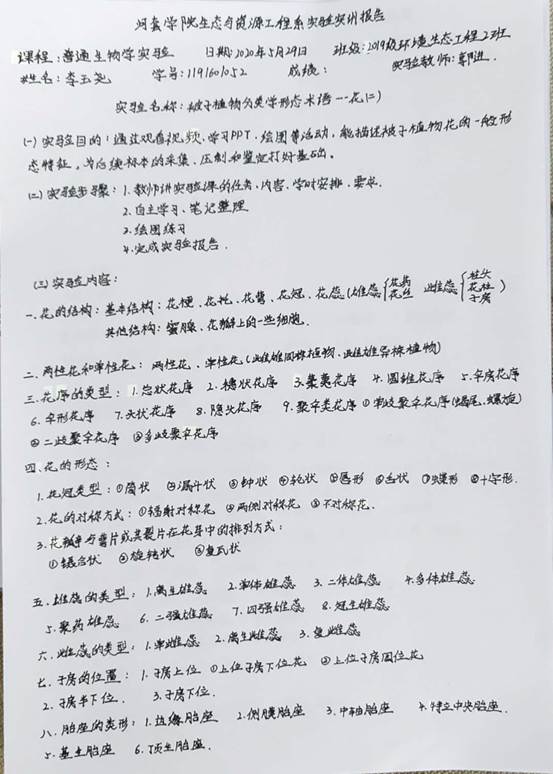 河套学院生态与资源工程系实验实训报告
课程：普通生物学实验 日期：2020年5月29日 班级：2019级环境生态工程2班
姓名：李玉尧 学号：1191601052 成绩： 实验教师：郭进.
实验名称：被子植物分类学形态术语--花(二)
(一)实验目的：通过观看视频、学习PPT、绘图等活动，能描述被子植物花的一般形
态特征，为后续标本的采集、压制和鉴定打好基础。
(二)实验步骤：1.教师讲实验课的任务、内容、学时安排、要求.
2.自主学习、笔记整理
3.绘图练习
4.完成实验报告.
(三)实验内容：
一、花的结构：基本结构：花梗、花托、花萼、花冠、花蕊(雄蕊{花药 花丝 雌蕊{柱头 花柱 子房)
其他结构：蜜腺、花瓣上的一些细胞.
二、两性花和单性花：两性花、单性花(雌雄同株植物、雌雄异株植物)
三、花序的类型：1.总状花序 2.穗状花序 3.葇荑花序 4.圆锥花序 5.伞房花序
6.伞形花序 7.头状花序 8.隐头花序 9.聚伞类花序①单歧聚伞花序(蝎尾、螺旋)
②二歧聚伞花序 ③多歧聚伞花序
四、花的形态：
1.花冠类型：①筒状 ②漏斗状 ③钟状 ④轮状 ⑤唇形 ⑥舌状 ⑦蝶形 ⑧十字形.
2.花的对称方式：①辐射对称花 ②两侧对称花 ③不对称花.
3.花瓣与萼片或其裂片在花芽中的排列方式：
①镊合状 ②旋转状 ③复瓦状
五、雄蕊的类型：1.离生雄蕊 2.单体雄蕊 3.二体雄蕊 4.多体雄蕊
5.聚药雄蕊 6.二强雄蕊 7.四强雄蕊 8.冠生雄蕊
六、雌蕊的类型：1.单雌蕊 2.离生雌蕊 3.复雌蕊
七、子房的位置：1.子房上位 ①上位子房下位花 ②上位子房周位花
2.子房半下位. 3.子房下位.
八、胎座的类形：1.边缘胎座 2.侧膜胎座 3.中轴胎座 4.特立中央胎座.
5.基生胎座 6.顶生胎座.